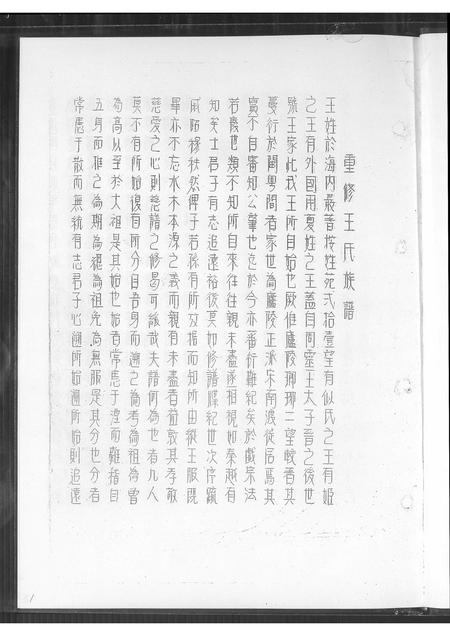 重修王氏族譜
王姓於海内最著按姓苑弍拾壹望有姒氏之王有姬
之王有外國用夏姓之王蓋自周靈王太子晉之後世
號王家此我王所自始也厥惟廬陵琊瑯二望較著其
蔓行於閩粤間者家世為廬陵正派宋南渡徙居焉其
實不自審知公肇也迄於今亦蕃衍難紀矣於戲宗法
若廢也類不知所自來往往親未盡遂相視如秦越有
知矣士君子有志追遠裕後莫如修譜牒紀世次序疏
戚昭穆秩然俾子若孫有所攷据而知所由縱王服既
畢亦不忘水木本源之義而親有未盡者益敦其孝敬
慈愛之心則急譜之修曷可緩哉夫譜何為也者凡人
莫不有所始復有所分自吾身而遡之為考為祖為曾
為高以至於太祖是其始也始者常患于湮而難指自
五身而推之為期為緦為祖免為無服是其分也分者
常患于散而無統有志君子必遡所始遡所始則追遠